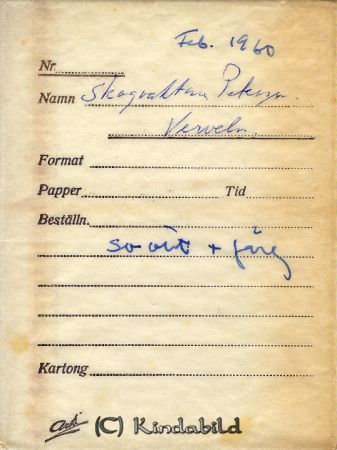 Feb. 1960
Nr.
Namn Skogvaktan Peterson
Verveln.
Format
Papper Tid
Beställn.
svart + färg
Kartong
(C) Kindabild